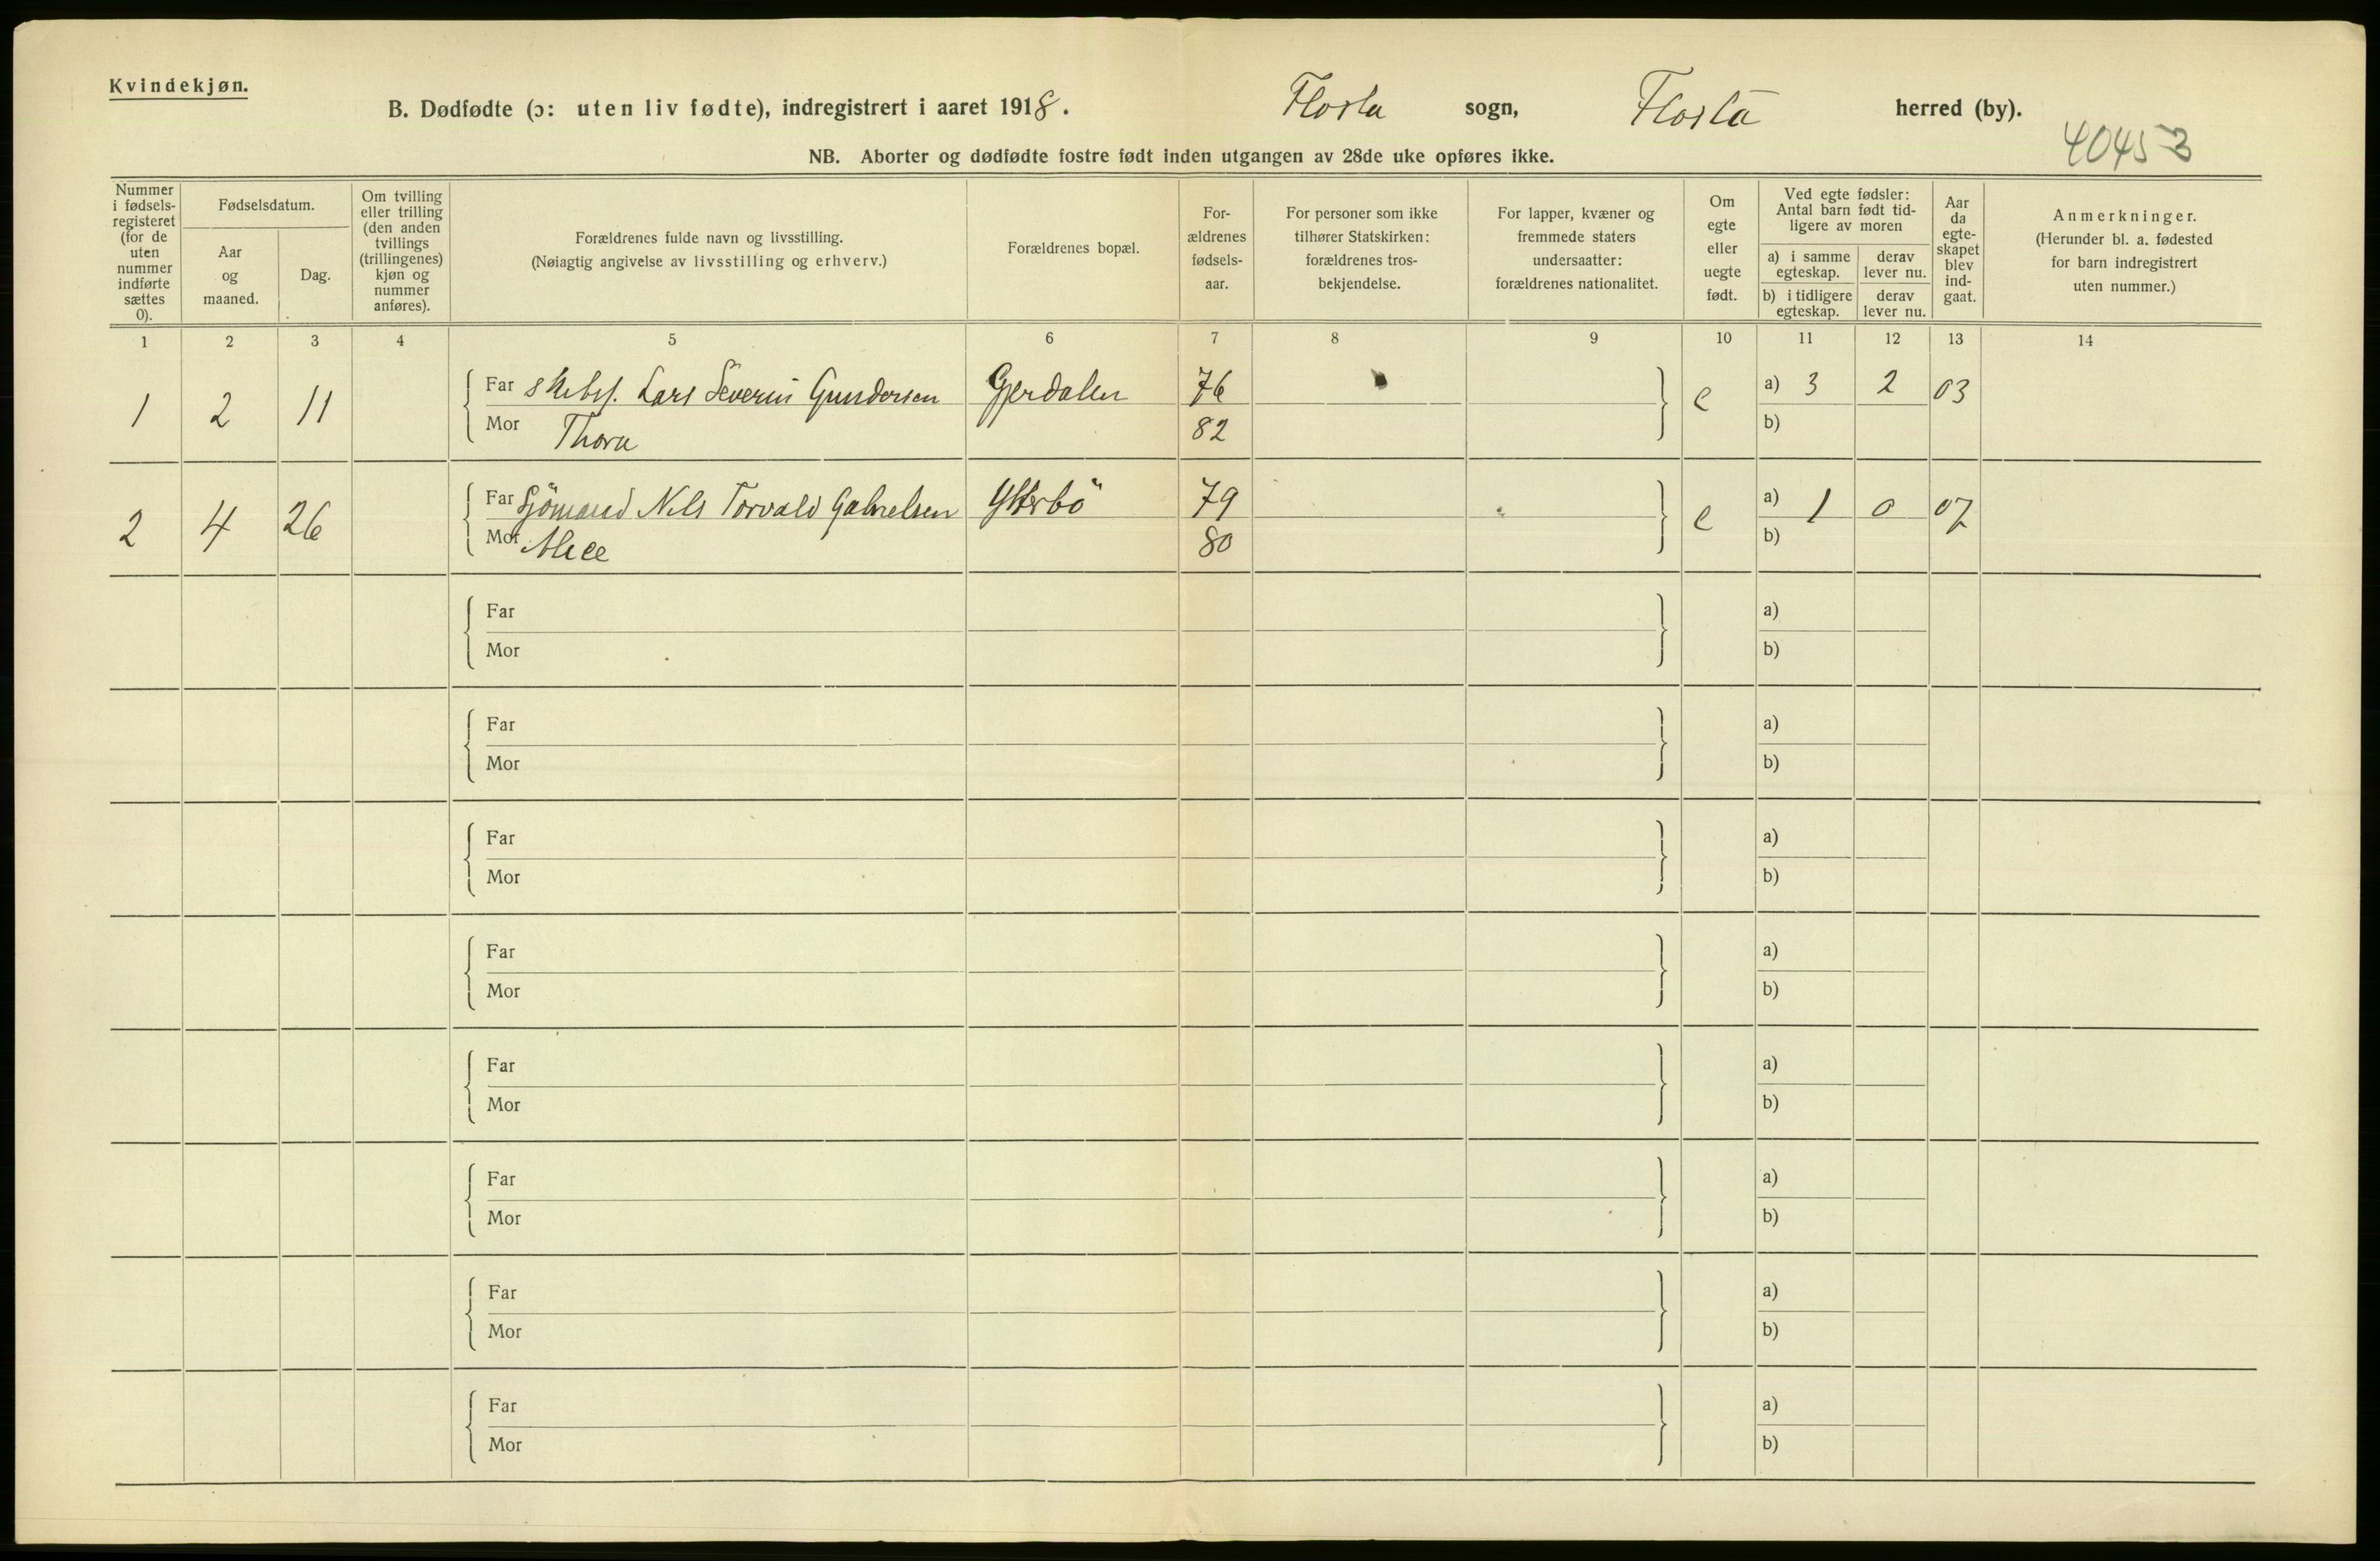 Kvindekjøn.
B. Dødfødte (ɔ: uten liv fødte), indregistrert i aaret 1918. Flosta sogn, Flosta herred (by).
40453
NB. Aborter og dødfødte fostre født inden utgangen av 28de uke opføres ikke.
Nummer i fødsels-registeret (for de uten nummer indførte sættes 0).
Fødselsdatum.
Aar og maaned.
Dag.
Om tvilling eller trilling (den anden tvillings (trillingenes) kjøn og nummer anføres).
Forældrenes fulde navn og livsstilling.
(Nøiagtig angivelse av livsstilling og erhverv.)
Forældrenes bopæl.
For-ældrenes fødsels-aar.
For personer som ikke tilhører Statskirken: forældrenes tros-bekjendelse.
For lapper, kvæner og fremmede staters undersaatter: forældrenes nationalitet.
Om egte eller uegte født.
Ved egte fødsler: Antal barn født tid-ligere av moren
a) i samme egteskap.
derav lever nu.
b) i tidligere egteskap.
derav lever nu.
Aar da egte-skapet blev ind-gaat.
Anmerkninger.
(Herunder bl. a. fødested for barn indregistrert uten nummer.)
1 2 3 4 5 6 7 8 9 10 11 12 13 14
1 2 11 Far Lars Severin Gundersen Gjerdalen 76 e a) 3 2 03
Mor Thora 82 b)
2 4 26 Far Sjömand Nils Torvald Gabrielsen Ytterbö 79 e a) 1 0 07
Mor Alice 80 b)
Far a)
Mor b)
Far a)
Mor b)
Far a)
Mor b)
Far a)
Mor b)
Far a)
Mor b)
Far a)
Mor b)
Far a)
Mor b)
Far a)
Mor b)